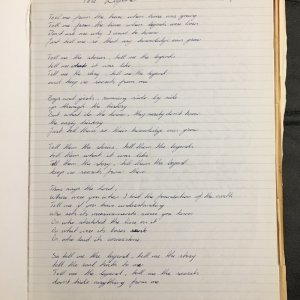 The Legend
Tell me from the time when time was young
Tell me from the time when legends were born
Don't ask me why I want to know
Just tell me so that my knowledge can grow
Tell me the stories, tell me the legends
tell me what it was like
Tell me the story, tell me the legend
and keep no secrets from me
Boys and girls, running side by side
up through the history
But what do the know, they surely don't know
the early history
Just tell them so their knowledge can grow
Tell them the stories, tell them the legends
tell them what it was like
Tell them the story, tell them the legend
keep no secrets from them
Then says the Lord,
Where were you when I laid the foundation of the earth
Tell me if you have understanding
Who set its measurements since you know
Or who stretched the line on it
On what were its bases sunk
Or who laid its cornerstone
So tell me the legend, tell me the story
tell the real truth to me
Tell me the legend, tell me the secrets
don't hide anything from me